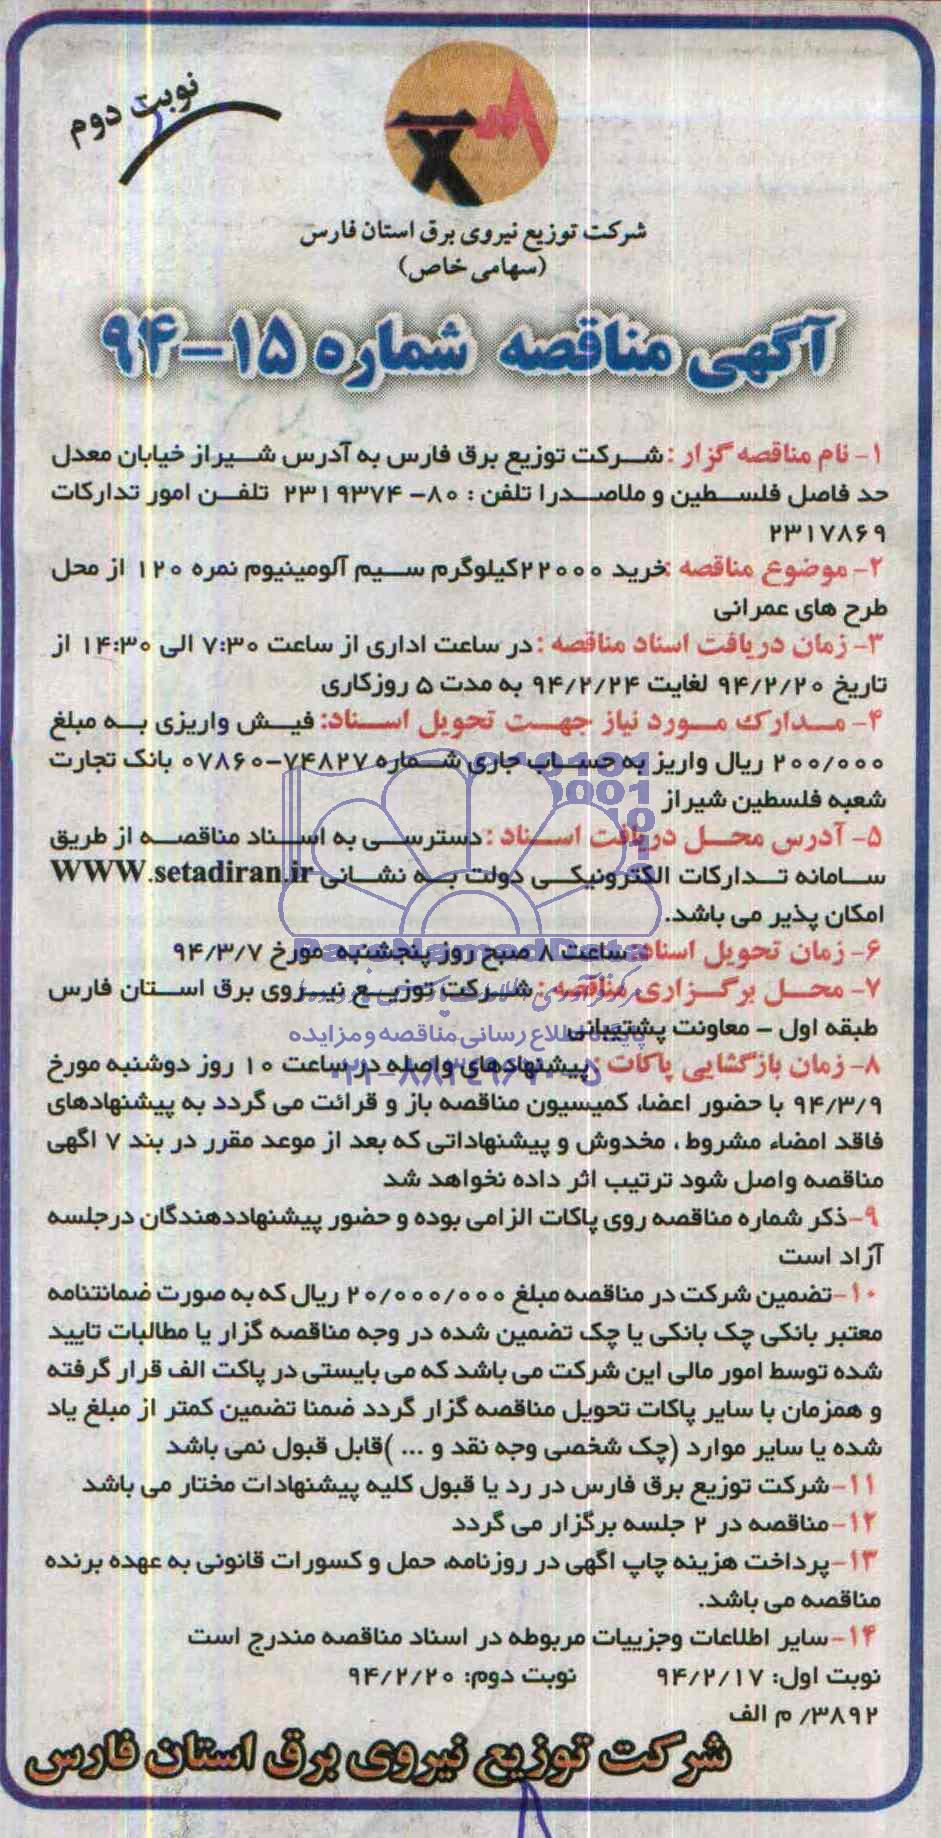 نوبت دوم
شرکت توزیع نیروی برق استان فارس
(سهامی خاص)
آگهی مناقصه شماره ۱۵-۹۴
۱- نام مناقصه گزار : شرکت توزیع برق فارس به آدرس شیراز خیابان معدل
حد فاصل فلسطین و ملاصدرا تلفن : ۸۰- ۲۳۱۹۳۷۴ تلفن امور تدارکات
۲۳۱۷۸۶۹
۲- موضوع مناقصه :خرید ۲۲۰۰۰کیلوگرم سیم آلومینیوم نمره ۱۲۰ از محل
طرح های عمرانی
۳- زمان دریافت اسناد مناقصه : در ساعت اداری از ساعت ۷:۳۰ الی ۱۴:۳۰ از
تاریخ ۹۴/۲/۲۰ لغایت ۹۴/۲/۲۴ به مدت ۵ روزکاری
۴- مدارک مورد نیاز جهت تحویل اسناد: فیش واریزی به مبلغ
۲۰۰/۰۰۰ ریال واریز به حساب جاری شماره ۷۴۸۲۷-۰۷۸۶۰ بانک تجارت
شعبه فلسطین شیراز
۵- آدرس محل دریافت اسناد : دسترسی به اسناد مناقصه از طریق
سامانه تدارکات الکترونیکی دولت به نشانی WWW.setadiran.ir
امکان پذیر می باشد.
۶- زمان تحویل اسناد: ساعت ۸ صبح روز پنجشنبه مورخ ۹۴/۳/۷
۷- محل برگزاری مناقصه : شرکت توزیع نیروی برق استان فارس
طبقه اول - معاونت پشتیبانی
پایگاه اطلاع رسانی مناقصه و مزایده
۸- زمان بازگشایی پاکات : پیشنهادهای واصله در ساعت ۱۰ روز دوشنبه مورخ
۹۴/۳/۹ با حضور اعضاء کمیسیون مناقصه باز و قرائت می گردد به پیشنهادهای
فاقد امضاء مشروط ، مخدوش و پیشنهاداتی که بعد از موعد مقرر در بند ۷ اگهی
مناقصه واصل شود ترتیب اثر داده نخواهد شد
۹-ذکر شماره مناقصه روی پاکات الزامی بوده و حضور پیشنهاددهندگان درجلسه
آزاد است
۱۰-تضمین شرکت در مناقصه مبلغ ۲۰/۰۰۰/۰۰۰ ریال که به صورت ضمانتنامه
معتبر بانکی چک بانکی یا چک تضمین شده در وجه مناقصه گزار یا مطالبات تایید
شده توسط امور مالی این شرکت می باشد که می بایستی در پاکت الف قرار گرفته
و همزمان با سایر پاکات تحویل مناقصه گزار گردد ضمنا تضمین کمتر از مبلغ یاد
شده یا سایر موارد (چک شخصی وجه نقد و ... )قابل قبول نمی باشد
۱۱-شرکت توزیع برق فارس در رد یا قبول کلیه پیشنهادات مختار می باشد
۱۲-مناقصه در ۲ جلسه برگزار می گردد
۱۳-پرداخت هزینه چاپ اگهی در روزنامه، حمل و کسورات قانونی به عهده برنده
مناقصه می باشد.
۱۴-سایر اطلاعات وجزییات مربوطه در اسناد مناقصه مندرج است
نوبت اول: ۹۴/۲/۱۷ نوبت دوم: ۹۴/۲/۲۰
۳۸۹۲/ م الف
شرکت توزیع نیروی برق استان فارس